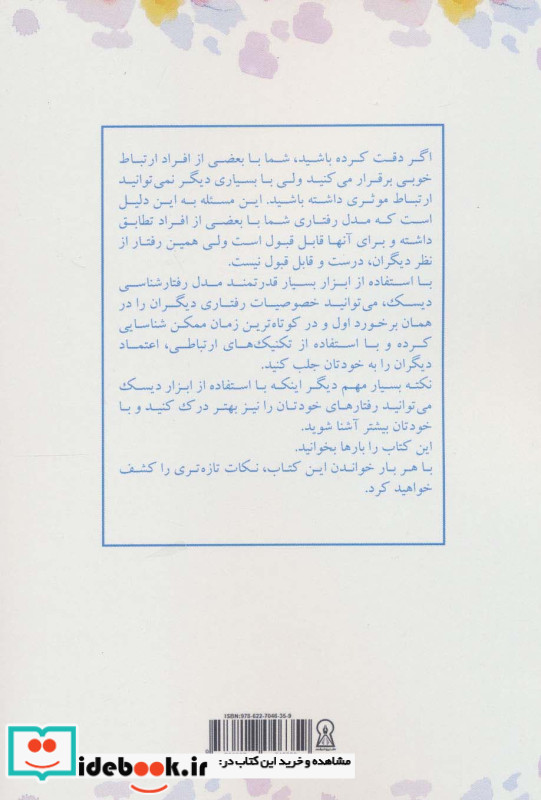 اگر دقت کرده باشید، شما با بعضی از افراد ارتباط
خوبی برقرار می‌کنید ولی با بسیاری دیگر نمی‌توانید
ارتباط موثری داشته باشید. این مسئله به این دلیل
است که مدل رفتاری شما با بعضی از افراد تطابق
داشته و برای آنها قابل قبول است ولی همین رفتار از
نظر دیگران، درست و قابل قبول نیست.
با استفاده از ابزار بسیار قدرتمند مدل رفتارشناسی
دیسک، می‌توانید خصوصیات رفتاری دیگران را در
همان برخورد اول و در کوتاه‌ترین زمان ممکن شناسایی
کرده و با استفاده از تکنیک‌های ارتباطی، اعتماد
دیگران را به خودتان جلب کنید.
نکته بسیار مهم دیگر اینکه با استفاده از ابزار دیسک
می‌توانید رفتارهای خودتان را نیز بهتر درک کنید و با
خودتان بیشتر آشنا شوید.
این کتاب را بارها بخوانید.
با هر بار خواندن این کتاب، نکات تازه‌تری را کشف
خواهید کرد.
مشاهده و خرید این کتاب در:
idebook.ir